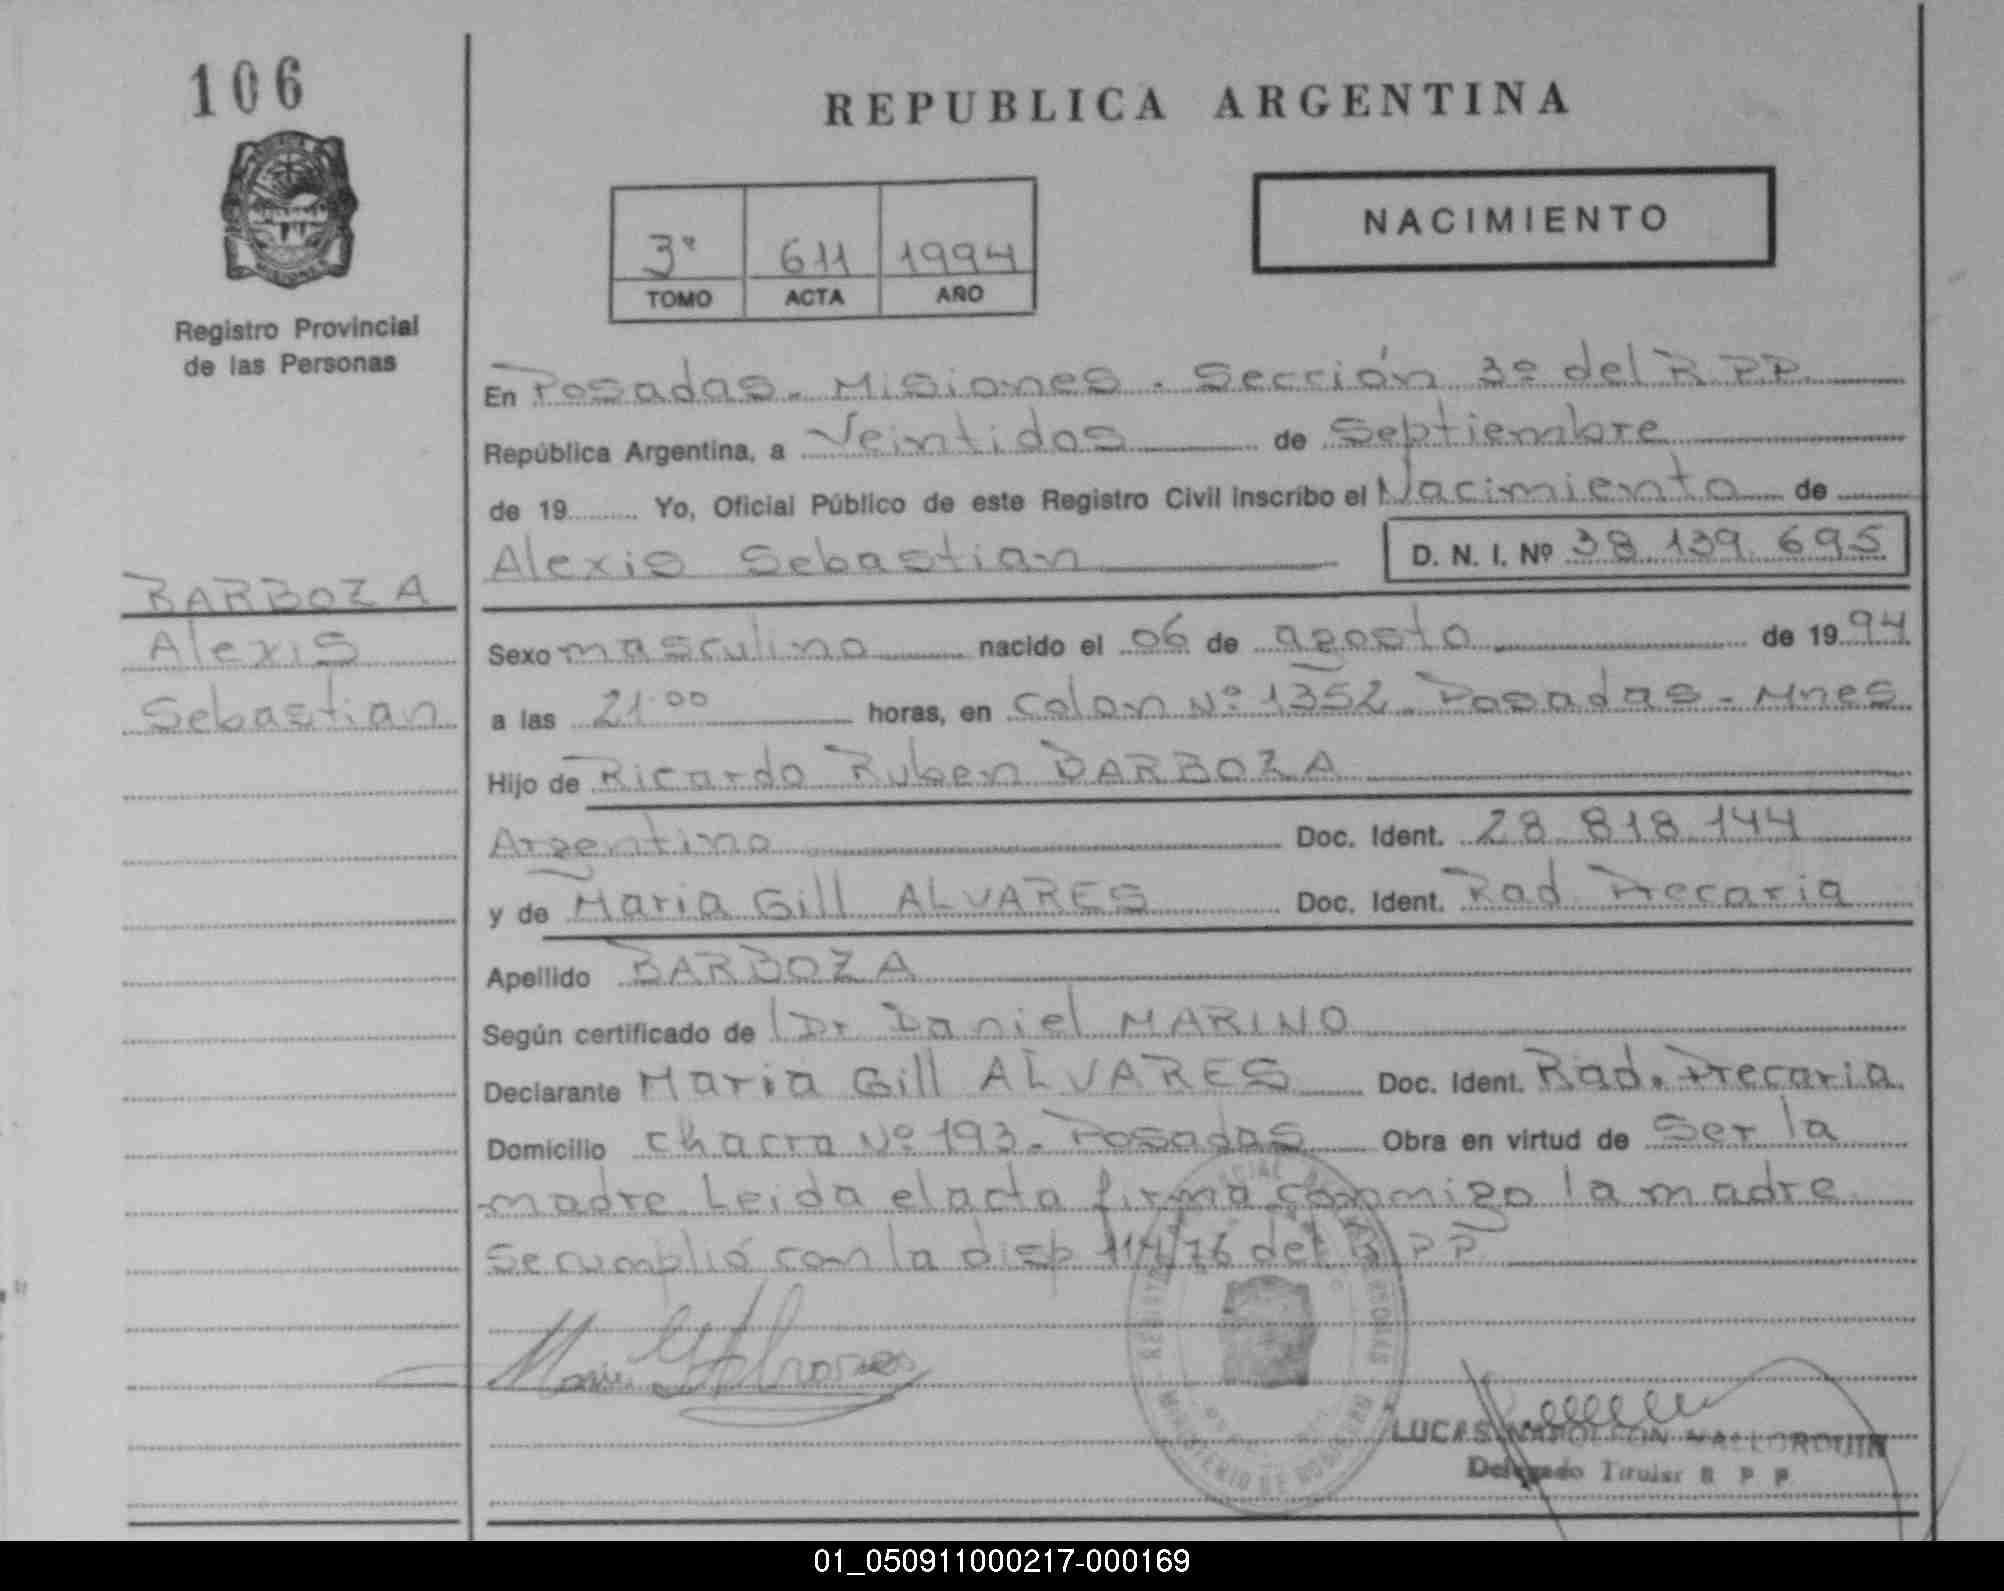 106
REPUBLICA ARGENTINA
NACIMIENTO
3º 611 1994
TOMO ACTA AÑO
MISIONES
Registro Provincial
de las Personas
En Posadas - Misiones - Sección 3º del R.P.P.
República Argentina, a Veintidos de Septiembre
de 19 Yo, Oficial Público de este Registro Civil inscribo el Nacimiento de
Alexis Sebastian D. N. I. Nº 38 139 695
BARBOZA
Alexis
Sebastian
Sexo masculino nacido el 06 de agosto de 1994
a las 21.00 horas, en Colon Nº 1352 - Posadas - Mnes
Hijo de Ricardo Ruben BARBOZA
Argentino Doc. Ident. 28 818 144
y de Maria Gill ALVARES Doc. Ident. Rad Precaria
Apellido BARBOZA
Según certificado de Dr Daniel MARINO
Declarante Maria Gill ALVARES Doc. Ident. Rad. Precaria
Domicilio chacra Nº 193 - Posadas Obra en virtud de Ser la
madre Leida el acta firma conmigo la madre
Se cumplió con la disp 114/76 del R P P
Maria G Alvares
MINISTERIO DE GOBIERNO
LUCAS NAPOLEON MALLORQUIN
Delegado Titular R P P
01_050911000217-000169